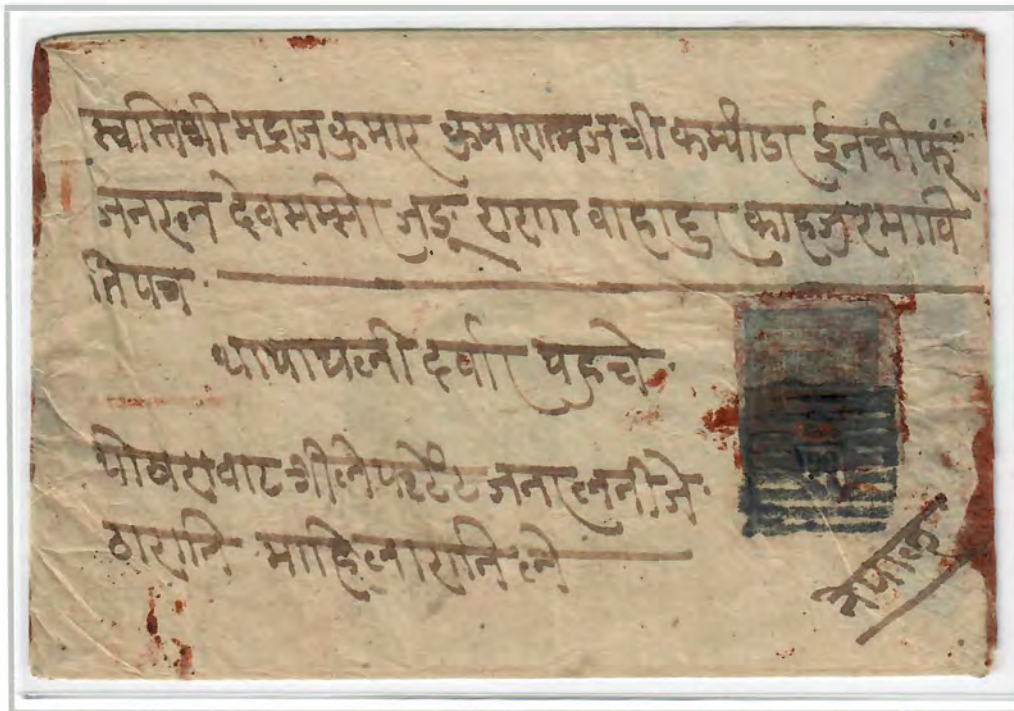 स्वस्तिश्री मद्राजकुमार कुमारात्मज श्री कम्यांडर ईनचीफ
जनरल देवसम्सेर जङ्ग राणा वाहादुर काहजुरमा वि
न्तिपत्र
थापाथली दर्वार पुहुचे
पोखरावाट श्री लेफ्टेंट जनरलनी जे
ठारानि माहिलारानिले
नेपाल